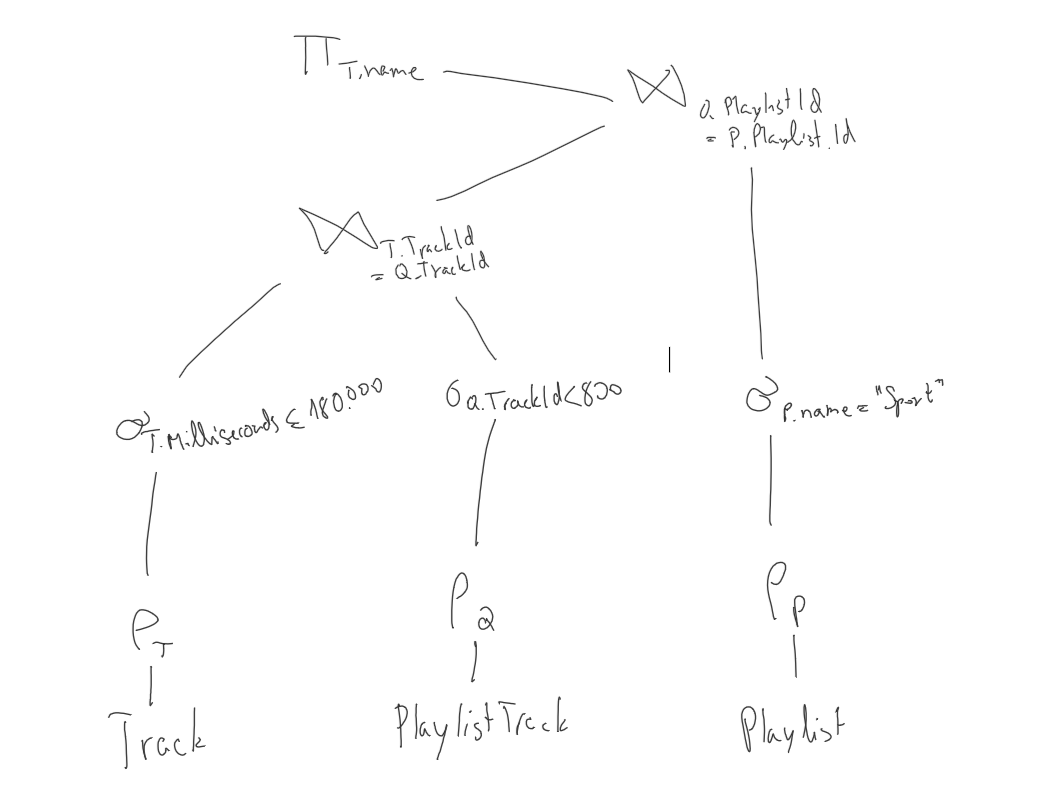 π T.name
⋈ Q.PlaylistId
= P.Playlist.Id
⋈ T.TrackId
= Q.TrackId
σ T.Milliseconds ≤ 180.000
σ Q.TrackId<800
σ P.name = "Sport"
ρ T
ρ Q
ρ P
Track
PlaylistTrack
Playlist